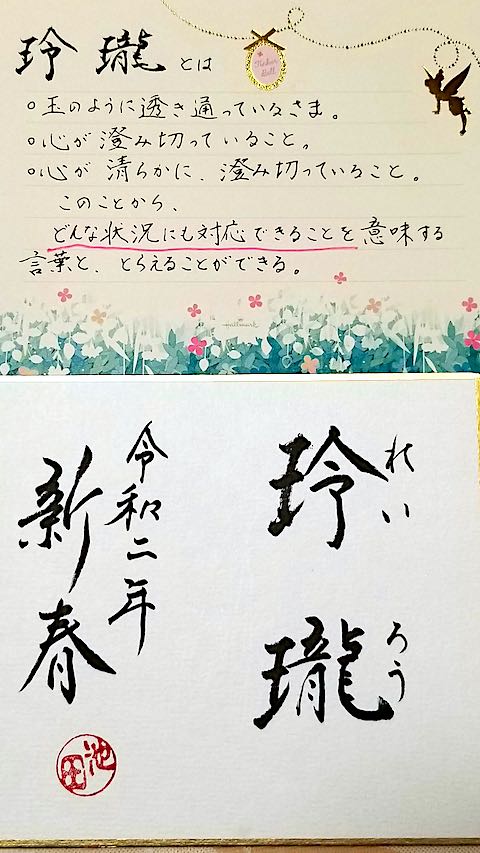 玲瓏とは
Tinker Bell
○玉のように透き通っているさま。
○心が澄み切っていること。
○心が清らかに、澄み切っていること。
このことから、
どんな状況にも対応できることを意味する
言葉と、とらえることができる。
Hallmark
玲瓏
れいろう
令和二年
新春
池田